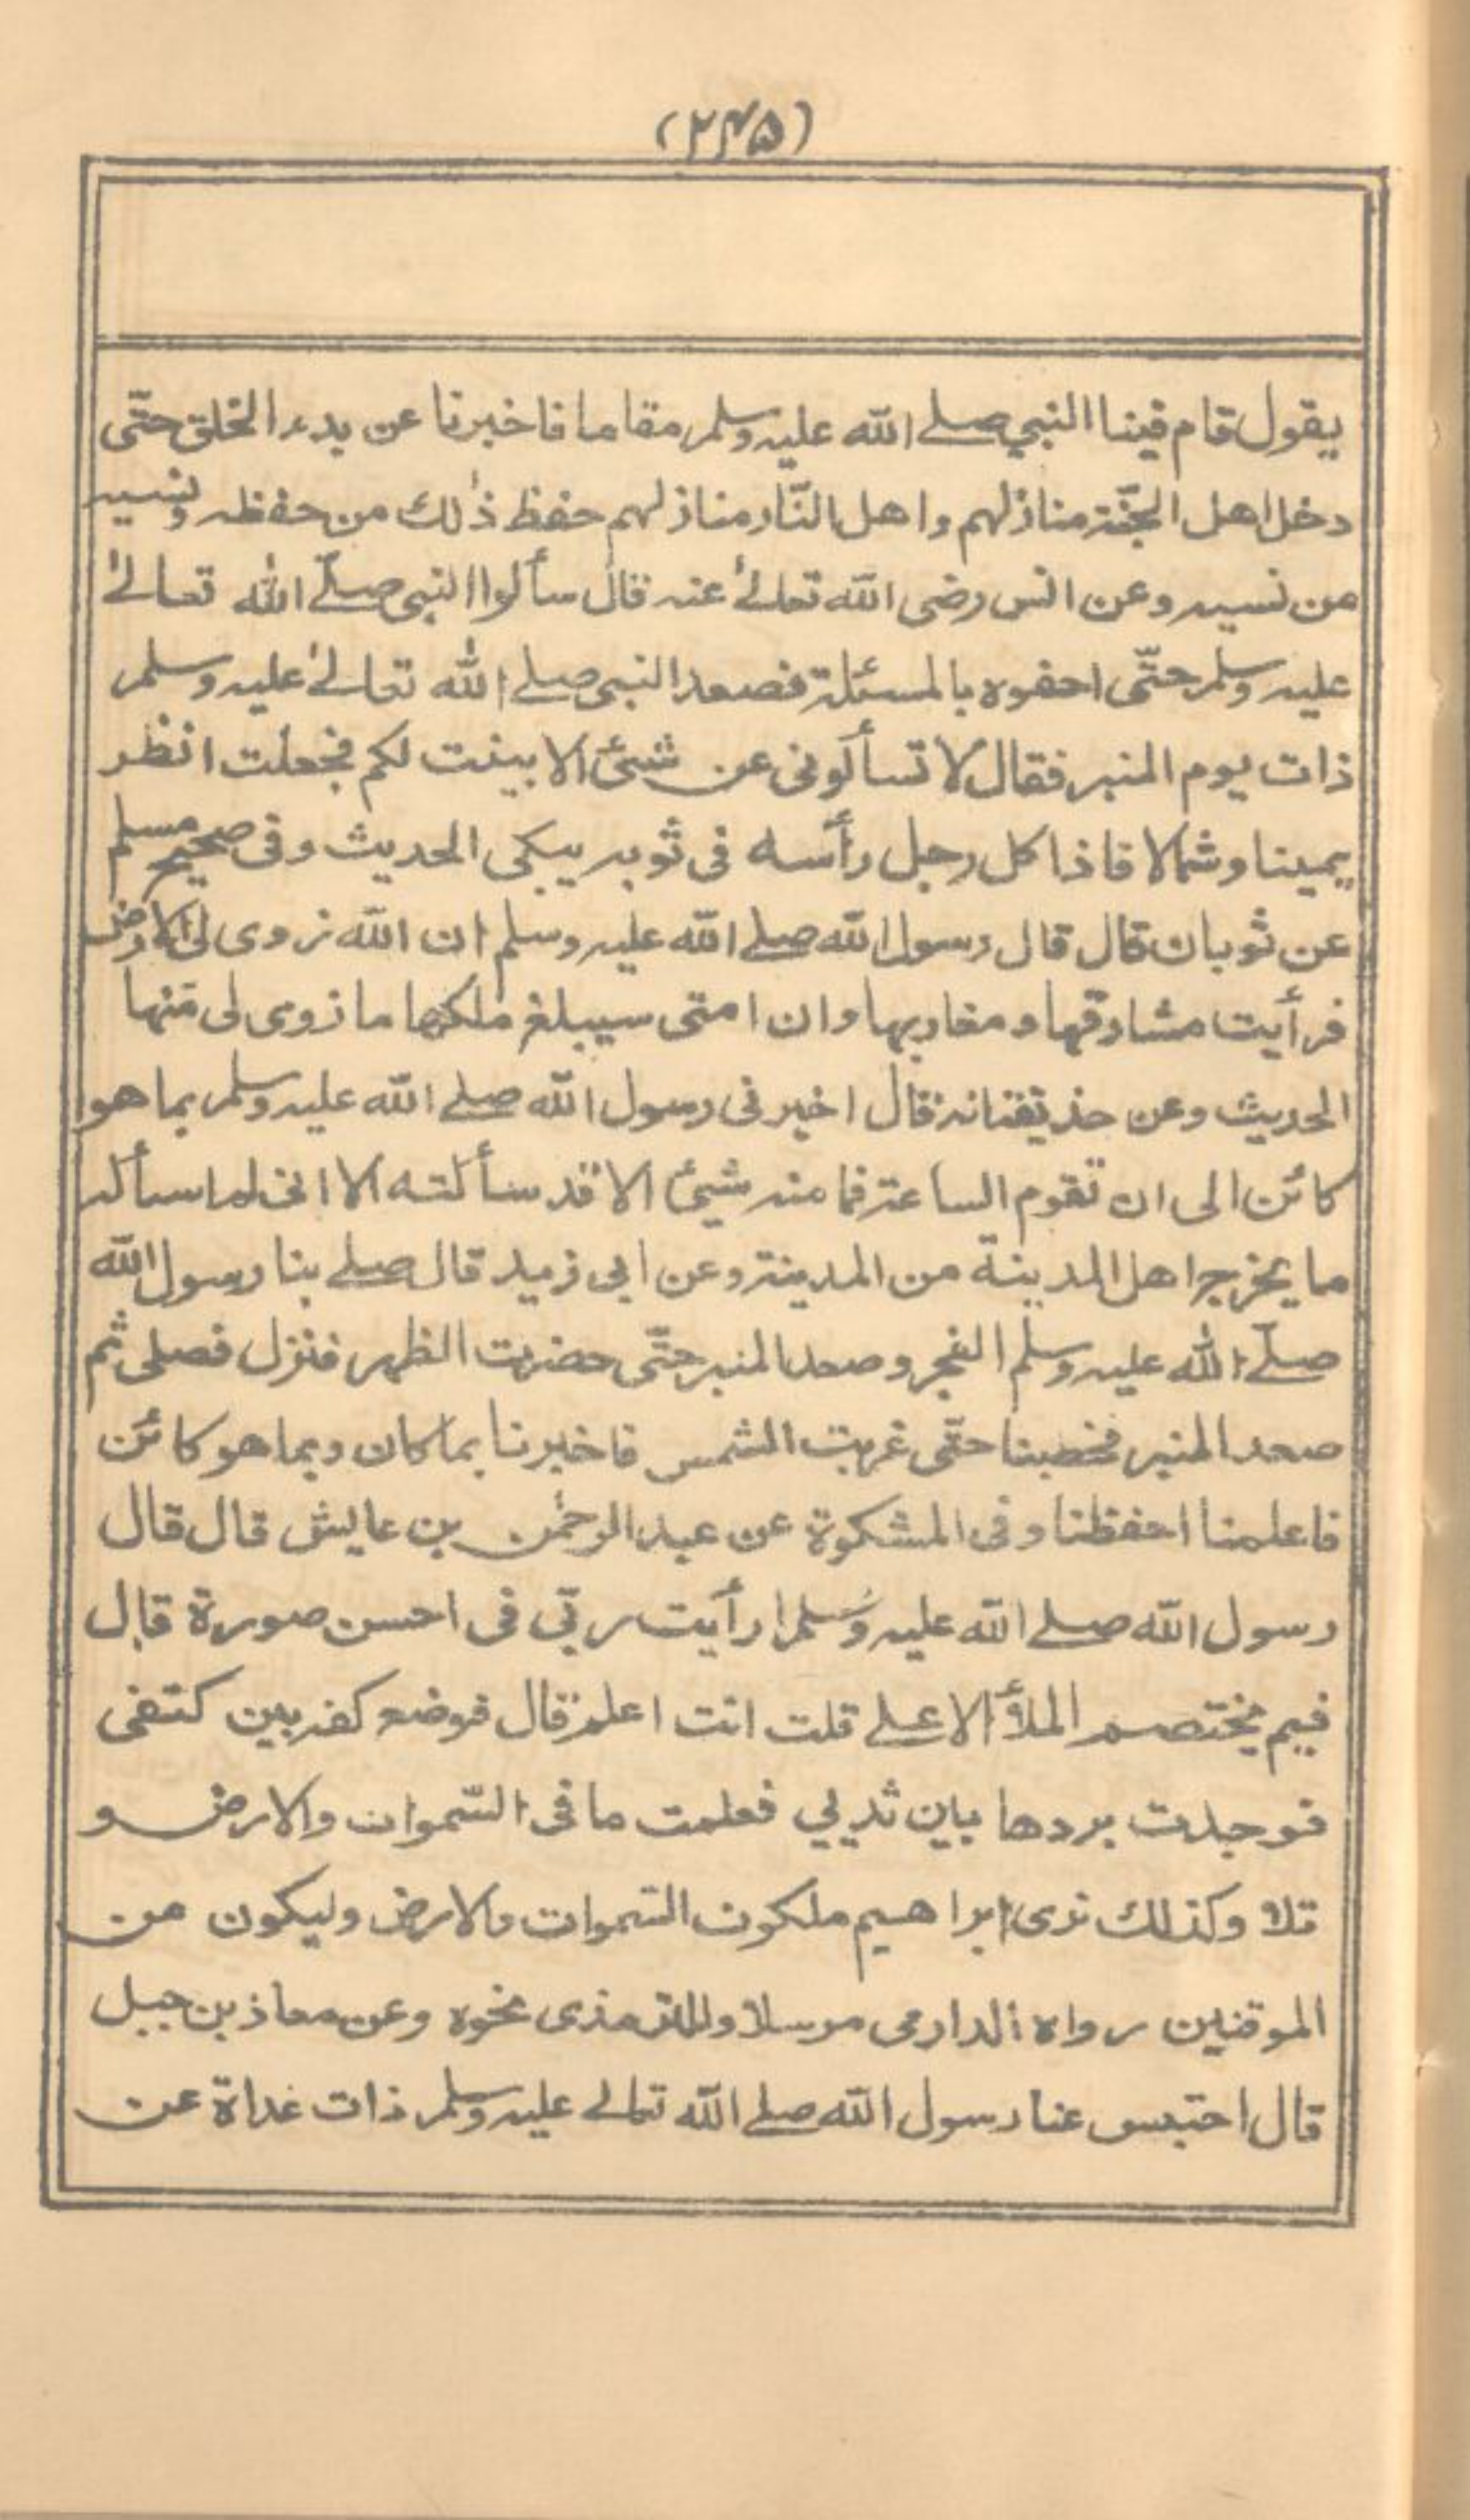 (۲۴۵)
يقول قام فينا النبي صلے الله عليه وسلم مقاما فاخبرنا عن بدء الخلق حتّى
دخل اهل الجنّة منازلهم واهل النّار منازلهم حفظ ذٰلك من حفظه ونسيه
من نسيه وعن انس رضى الله تعالےٰ عنه قال سألوا النبى صلّے الله تعالےٰ
عليه وسلم حتّى احفوه بالمسئلة فصعد النبى صلے الله تعالےٰ عليه وسلم
ذات يوم المنبر فقال لا تسألونى عن شئ الا بينت لكم فجعلت انظر
يمينا وشمالا فاذا كل رجل رأسه فى ثوبه يبكى الحديث وفى صحيح مسلم
عن ثوبان قال قال رسول الله صلے الله عليه وسلم ان الله زوى لى الارض
فرأيت مشارقها ومغاربها وان امتى سيبلغ ملكها ما زوى لى منها
الحديث وعن حذيفة انه قال اخبرنى رسول الله صلے الله عليه وسلم بما هو
كائن الى ان تقوم الساعة فما منه شيئ الا قد سألته الا انى لم اسأله
ما يخرج اهل المدينة من المدينة وعن ابى زيد قال صلے بنا رسول الله
صلّے الله عليه وسلم الفجر وصعد المنبر حتّى حضرت الظهر فنزل فصلى ثم
صعد المنبر فخطبنا حتّى غربت الشمس فاخبرنا بما كان وبما هو كائن
فاعلمنا احفظنا وفى المشكوة عن عبد الرحمٰن بن عايش قال قال
رسول الله صلے الله عليه وسلم رأيت ربّى فى احسن صورة قال
فيم يختصم الملأ الاعلے قلت انت اعلم قال فوضع كفه بين كتفى
فوجدت بردها بين ثديي فعلمت ما فى السّموات والارض و
تلا وكذلك نرى ابراهيم ملكوت السّموات والارض وليكون من
الموقنين رواه الدارمى مرسلا وللترمذى نحوه وعن معاذ بن جبل
قال احتبس عنا رسول الله صلے الله تعالے عليه وسلم ذات غداة عن